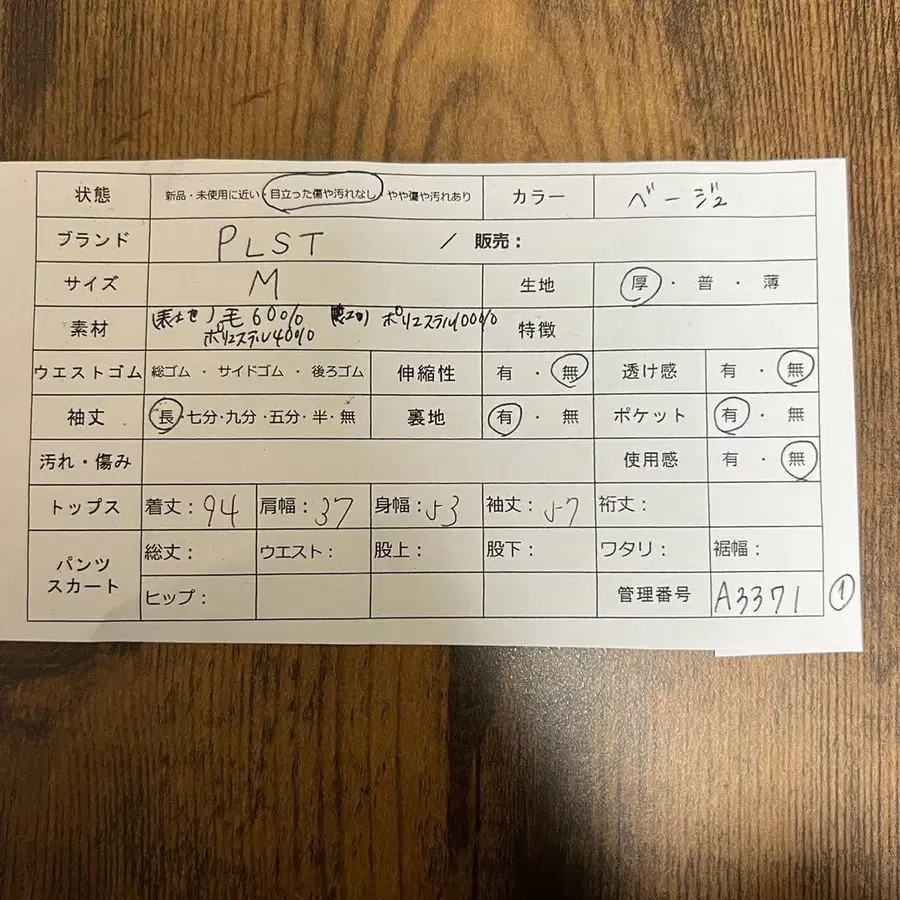 状態 新品・未使用に近い・目立った傷や汚れなし・やや傷や汚れあり カラー ベージュ
ブランド PLST / 販売：
サイズ M 生地 厚・普・薄
素材 (表生地)毛60% (裏生地)ポリエステル100% 特徴
ポリエステル40%
ウエストゴム 総ゴム・サイドゴム・後ろゴム 伸縮性 有・無 透け感 有・無
袖丈 長・七分・九分・五分・半・無 裏地 有・無 ポケット 有・無
汚れ・傷み 使用感 有・無
トップス 着丈：94 肩幅：37 身幅：53 袖丈：57 裄丈：
パンツ スカート 総丈： ウエスト： 股上： 股下： ワタリ： 裾幅：
ヒップ： 管理番号 A3371 ①